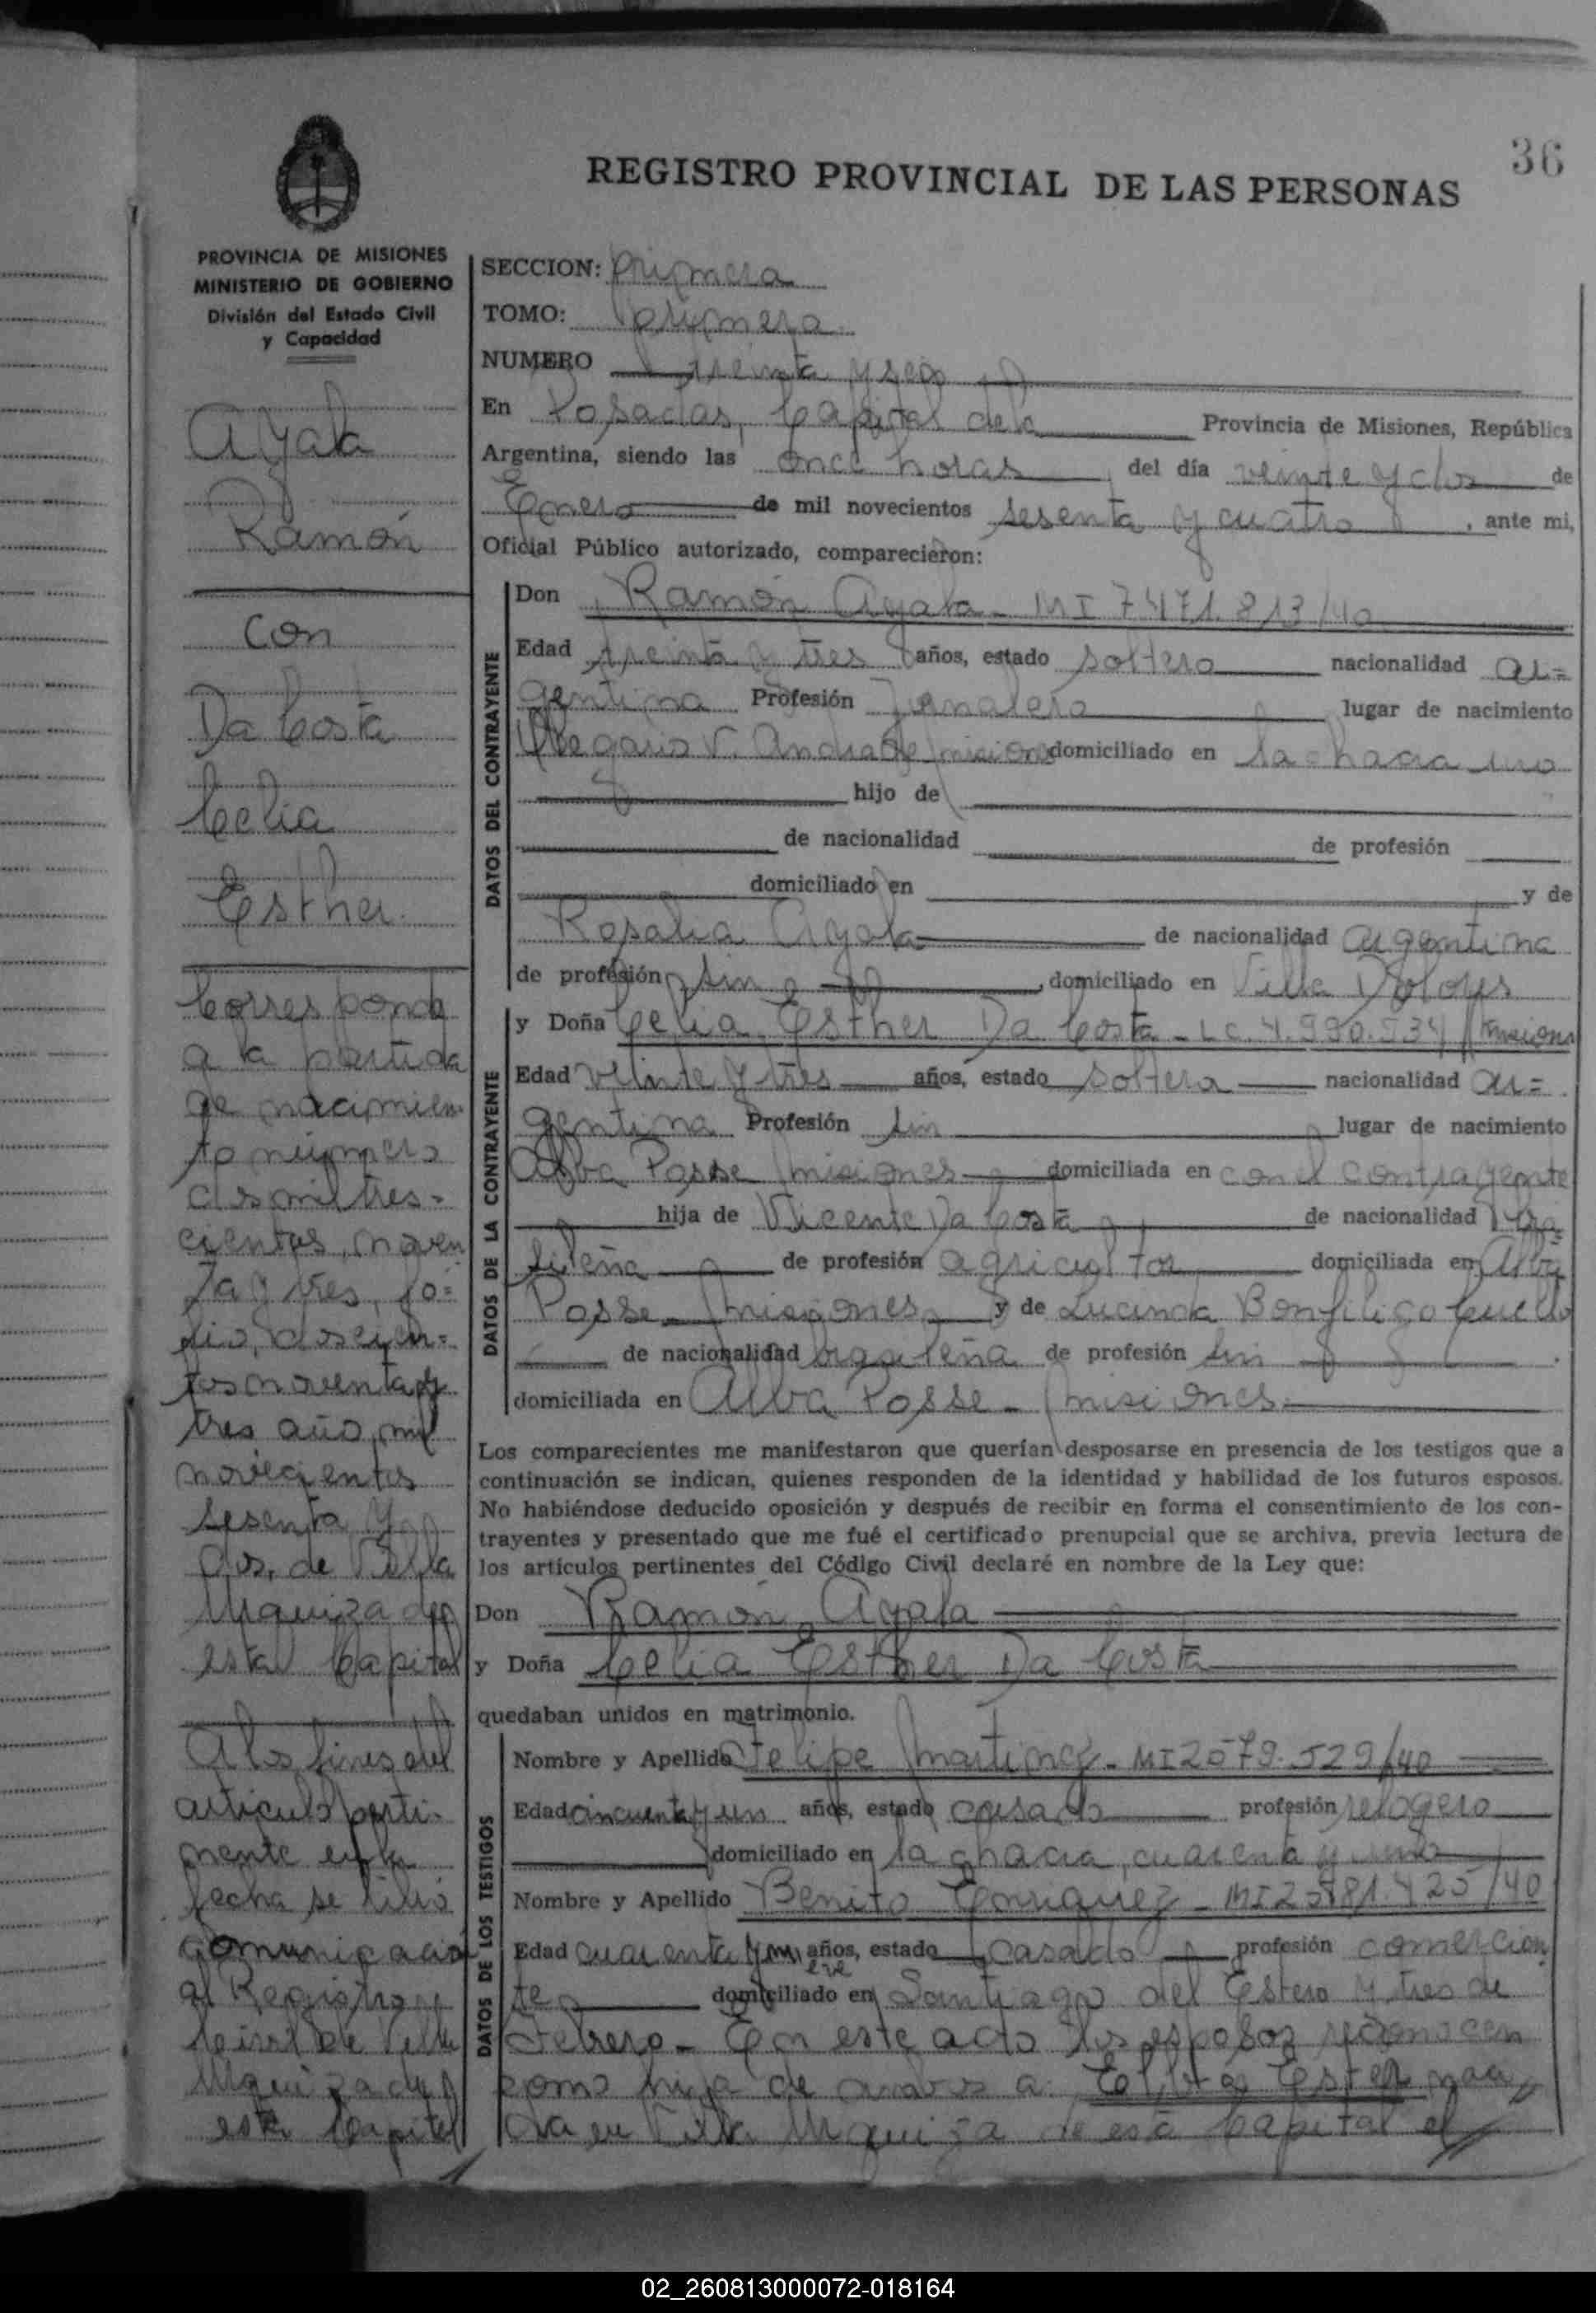 36
REGISTRO PROVINCIAL DE LAS PERSONAS
PROVINCIA DE MISIONES
MINISTERIO DE GOBIERNO
División del Estado Civil
y Capacidad
Ayala
Ramón
con
Da Costa
Celia
Esther.
Corresponde
a la partida
de nacimien
to número
dos mil tres=
cientos, noven
ta y tres, fo=
lio, doscien=
tos noventa y
tres año mil
novecientos
sesenta y
dos, de Villa
Urquiza de
esta Capital
A los fines del
artículo perti-
nente en la
fecha se libró
comunicación
al Registro
Civil de Villa
Urquiza de
esta Capital
SECCION: primera
TOMO: primera
NUMERO treinta y seis
En Posadas, Capital de la Provincia de Misiones, República
Argentina, siendo las once horas del día veinte y dos de
Enero de mil novecientos sesenta y cuatro, ante mi,
Oficial Público autorizado, comparecieron:
DATOS DEL CONTRAYENTE
Don Ramón Ayala - MI 7471.813/40
Edad treinta y tres años, estado soltero nacionalidad ar=
gentina Profesión Jornalero lugar de nacimiento
Olegario V. Andrade Misiones domiciliado en la chacra uno
hijo de
de nacionalidad de profesión
domiciliado en y de
Rosalia Ayala de nacionalidad argentina
de profesión sin, domiciliado en Villa Dolores
DATOS DE LA CONTRAYENTE
y Doña Celia Esther Da Costa - LC 4.990.934 // Misiones
Edad veinte y tres años, estado soltera nacionalidad ar=
gentina Profesión sin lugar de nacimiento
Alba Posse Misiones domiciliada en con el contrayente
hija de Vicente Da Costa de nacionalidad bra=
sileña de profesión agricultor domiciliada en Alba
Posse - Misiones y de Lucinda Cuello
de nacionalidad brasileña de profesión sin
domiciliada en Alba Posse - Misiones.
Los comparecientes me manifestaron que querían desposarse en presencia de los testigos que a
continuación se indican, quienes responden de la identidad y habilidad de los futuros esposos.
No habiéndose deducido oposición y después de recibir en forma el consentimiento de los con-
trayentes y presentado que me fué el certificado prenupcial que se archiva, previa lectura de
los artículos pertinentes del Código Civil declaré en nombre de la Ley que:
Don Ramón Ayala
y Doña Celia Esther Da Costa
quedaban unidos en matrimonio.
DATOS DE LOS TESTIGOS
Nombre y Apellido Felipe Martinez - MI 2079.529/40
Edad cincuenta y un años, estado casado profesión relogero
domiciliado en la chacra, cuarenta y uno
Nombre y Apellido Benito Enriquez - MI
Edad cuarenta y nu eve años, estado casado profesión comercian
te domiciliado en Santiago del Estero y tres de
Febrero - En este acto los esposos reconocen
como hija de ambos a: Ester naci
da en Villa Urquiza de esta Capital el
02_260813000072-018164